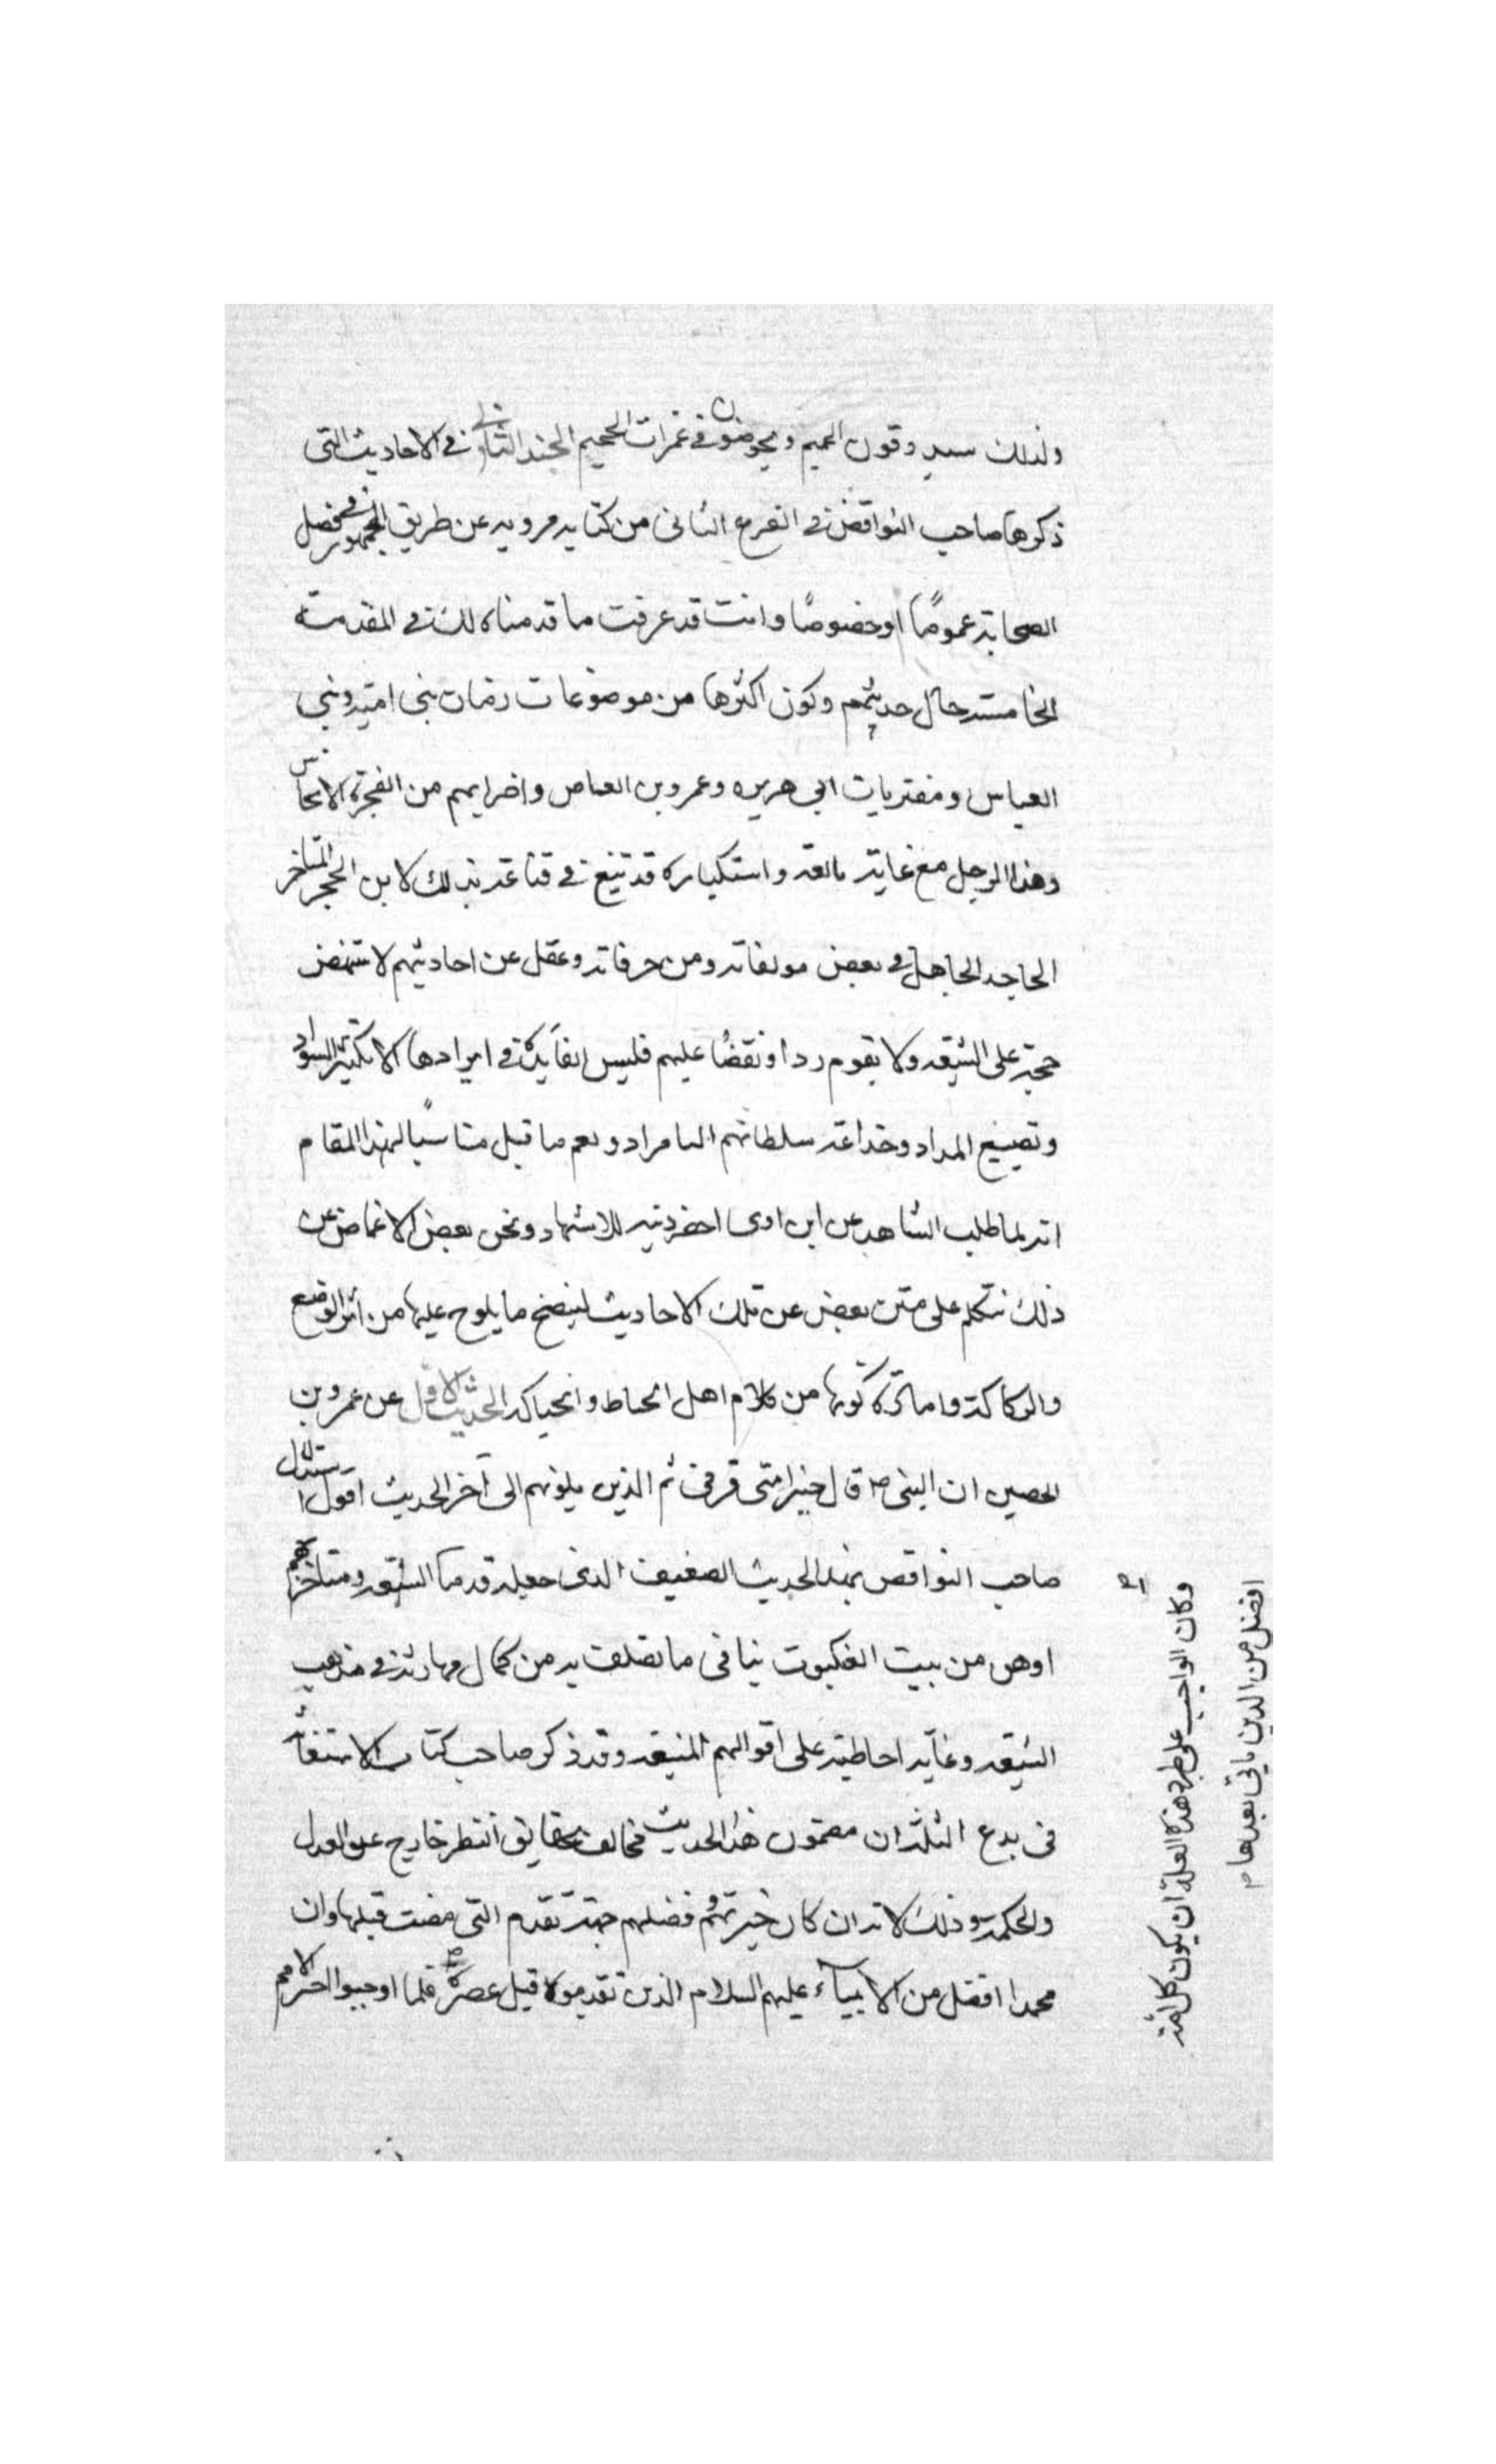 ولذلك سيدوقون الحميم ويخوضون في غمرات الجحيم الجند الثاني في الاحاديث التي
ذكرها صاحب النواقض في الفرع الثاني من كتابه مرويه عن طريق الجمهور في فضل
الصحابة عموما او خصوصا وانت قد عرفت ما قدمناه لك في المقدمة
الخامسة حال حديثهم وكون اكثرها من موضوعات زمان بني امية وبني
العباس ومفتريات ابي هريره وعمرو بن العاص واضرابهم من الفجرة الانجاس
وهذا الرجل مع غاية واستكباره قد تبع في قناعته بذلك لابن الحجر المتاخر
الجاحد الجاهل في بعض مولفاته ومن خرفاته وغفل عن احاديثهم لا تنتهض
حجة على الشيعة ولا يقوم ردا ونقضا عليهم فليس الفايدة في ايرادها الا تكثير السواد
وتضييع المداد وخداعة سلطانهم النامراد ونعم ما قيل مناسبا لهذا المقام
انه لما طلب الشاهد عن ابن اوى احضر ذنبه للاشهاد ونحن بعض الاغماض عن
ذلك نتكلم على متن بعض عن تلك الاحاديث ليتضح ما يلوح عليها من اثر الوضع
والركاكة واماتركونها من كلام اهل الحناط والحياكة الحديث الاول عن عمرو بن
الحصين ان النبي ص قال خير امتي قرني ثم الذين يلونهم الى آخر الحديث اقول استدلال
صاحب النواقض بهذا الحديث الضعيف الذي جعله قدما الشيعة ومتاخرهم
اوهن من بيت العنكبوت ينافي ما تصلف به من كمال مهارته في مذهب
الشيعة وغاية احاطته على اقوالهم المنيعة وقد ذكر صاحب كتاب الاستغاثة
في بدع الثلثة ان مضمون هذا الحديث مخالف لحقايق النظر خارج عن العدل
والحكمة وذلك لانه ان كان خيرتهم وفضلهم جهة تقدم التي مضت قبلها وان
محمدا افضل من الانبياء عليهم السلام الذين تقدموه قبل عصره فلما اوجبوا
وكان الواجب على طرد هذه العلة ان يكون كل امة
افضل من الذين ياتي بعدها